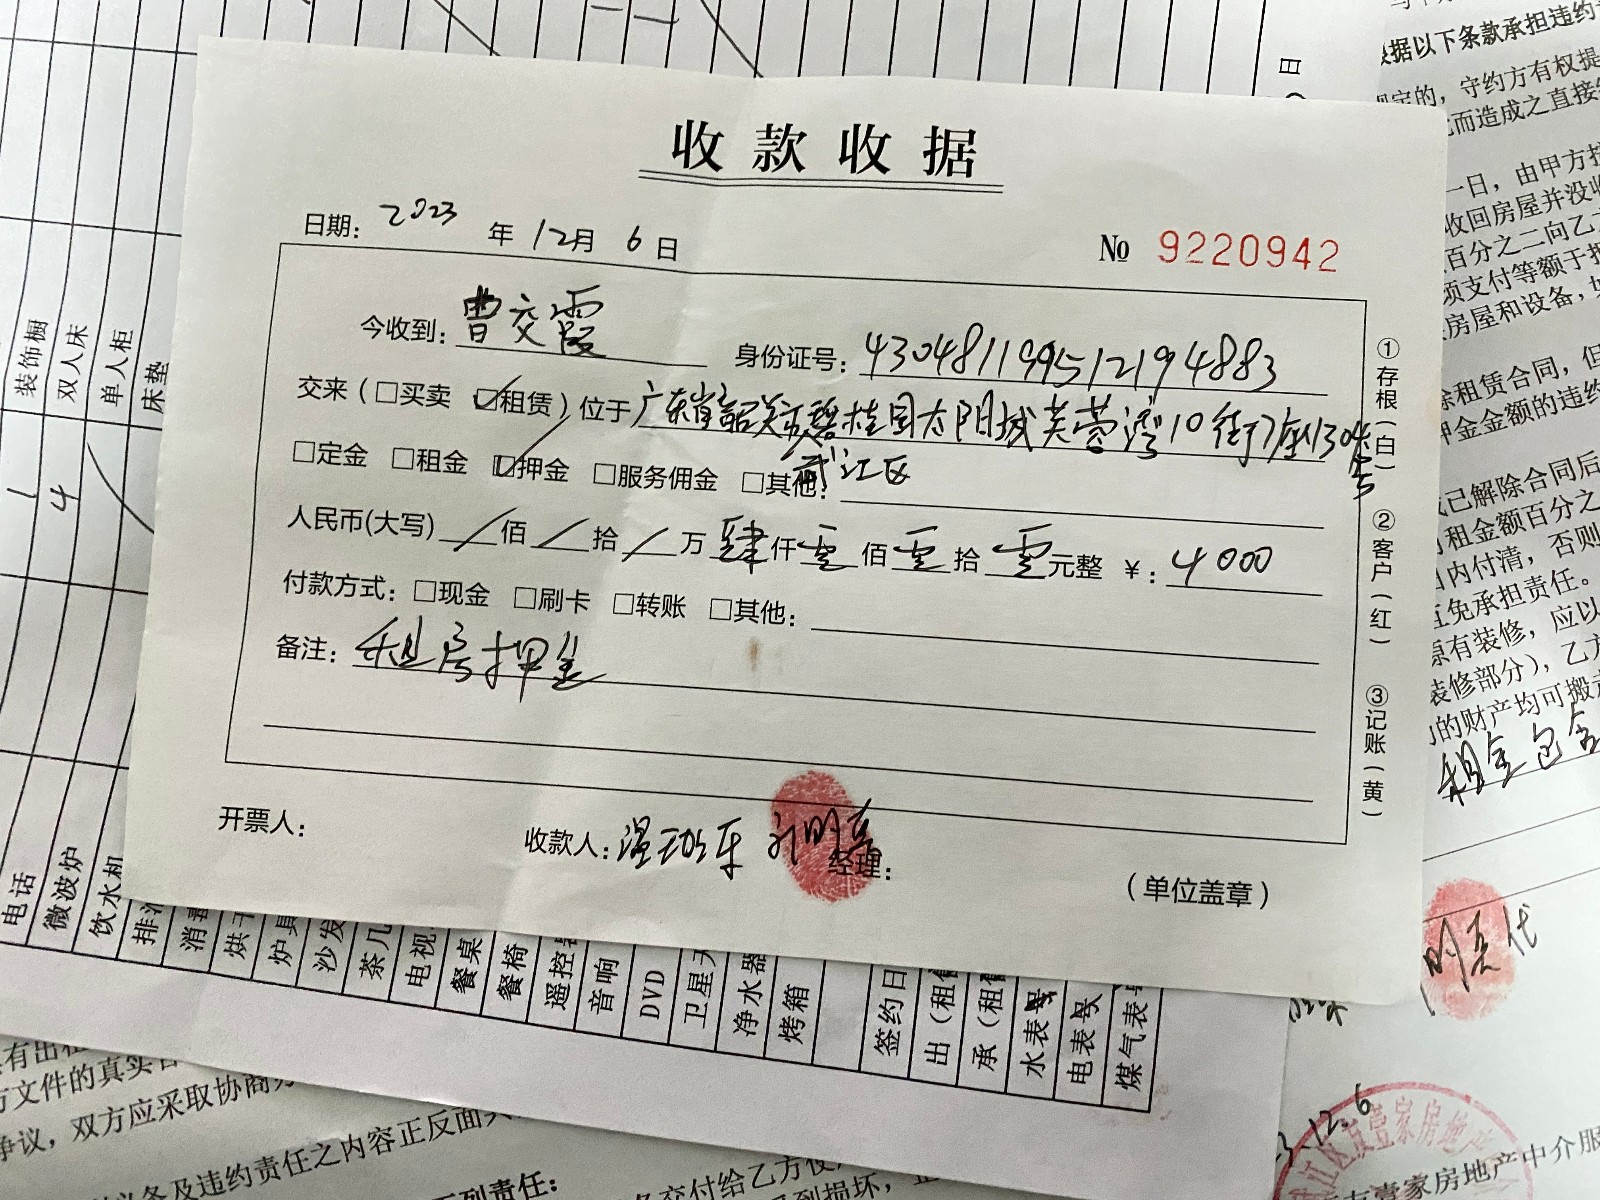 收款收据
日期: 2023 年 12月 6日
№ 9220942
今收到: 曹交霞 身份证号: 430481199512194883
交来(□买卖 ☑租赁)位于广东省韶关市碧桂园太阳城芙蓉湾10街7座1304号
武江区
□定金 □租金 ☑押金 □服务佣金 □其他:
人民币(大写) / 佰 / 拾 / 万 肆 仟 零 佰 零 拾 零 元整 ¥: 4000
付款方式: □现金 □刷卡 □转账 □其他:
备注: 租房押金
开票人:
收款人: 温
经理:
(单位盖章)
①存根(白) ②客户(红) ③记账(黄)
装饰橱
双人床
单人柜
床垫
1
4
电话
微波炉
饮水机
沙发
茶几
电视
餐桌
餐椅
遥控
音响
DVD
卫星
净水器
烤箱
签约日
出(租
承(租
水表号
电表号
煤气表
日
据以下条款承担违约
定的,守约方有权提
而造成之直接
一日,由甲方
收回房屋并没收
百分之二向乙方
须支付等额于
房屋和设备,如
除租赁合同,但
押金金额的违约
或已解除合同后
租金额百分之
日内付清,否则
互免承担责任。
原有装修,应以
装修部分),乙方
的财产均可搬
租金包含
明亮代
3.12.6
壹家房地产
壹家房地产中介服
有出租
方文件的真实
争议,双方应采取协商
义务及违约责任之内容正反面
下列责任:
交付给乙方使
到损坏,